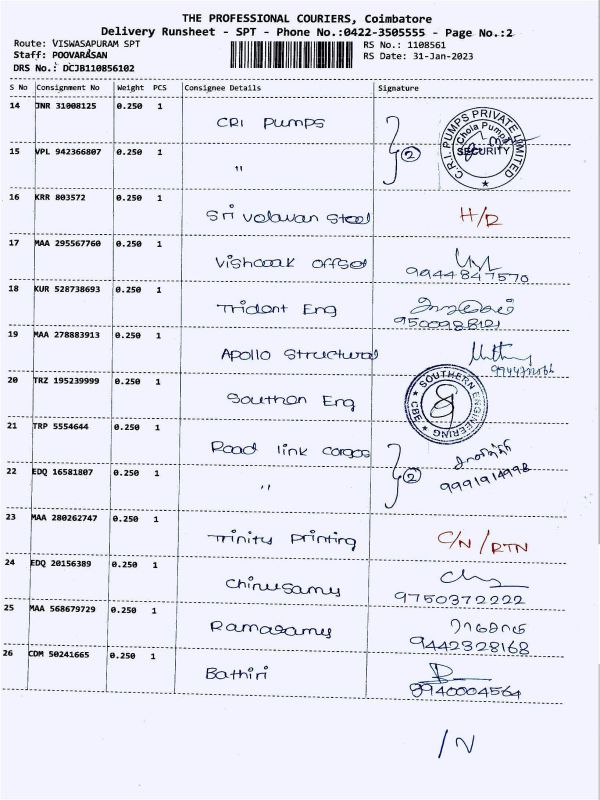 THE PROFESSIONAL COURIERS, Coimbatore
Delivery Runsheet - SPT - Phone No.:0422-3505555 - Page No.:2
Route: VISWASAPURAM SPT RS No.: 1108561
Staff: POOVARASAN RS Date: 31-Jan-2023
DRS No.: DCJB110856102
S No Consignment No Weight PCS Consignee Details Signature
14 JNR 31008125 0.250 1 CRI Pumps
C.R.I. PUMPS PRIVATE LIMITED Chola Pumps SECURITY
15 VPL 942366807 0.250 1 " 2
16 KRR 803572 0.250 1 Sri Volavan Steel H/D
17 MAA 295567760 0.250 1 Vishaak offset 9944847570
18 KUR 528738693 0.250 1 Trident Eng 9500988121
19 MAA 278883913 0.250 1 Apollo Structural
20 TRZ 195239999 0.250 1 Southon Eng
SOUTHERN ENGINEERING CBE
21 TRP 5554644 0.250 1 Road link cargos
22 EDQ 16581807 0.250 1 " 2 9991914998
23 MAA 280262747 0.250 1 Trinity Printing C/N / RTN
24 EDQ 20156389 0.250 1 Chinusamy 9750372222
25 MAA 568679729 0.250 1 Ramasamy 9442328168
26 CDM 50241665 0.250 1 Bathiri 9940004564
/N